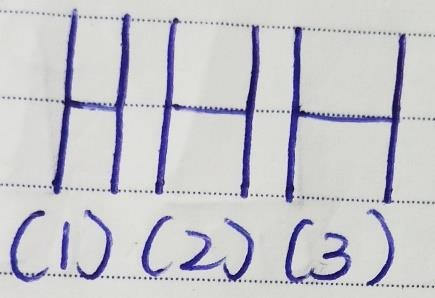 H H H
(1) (2) (3)